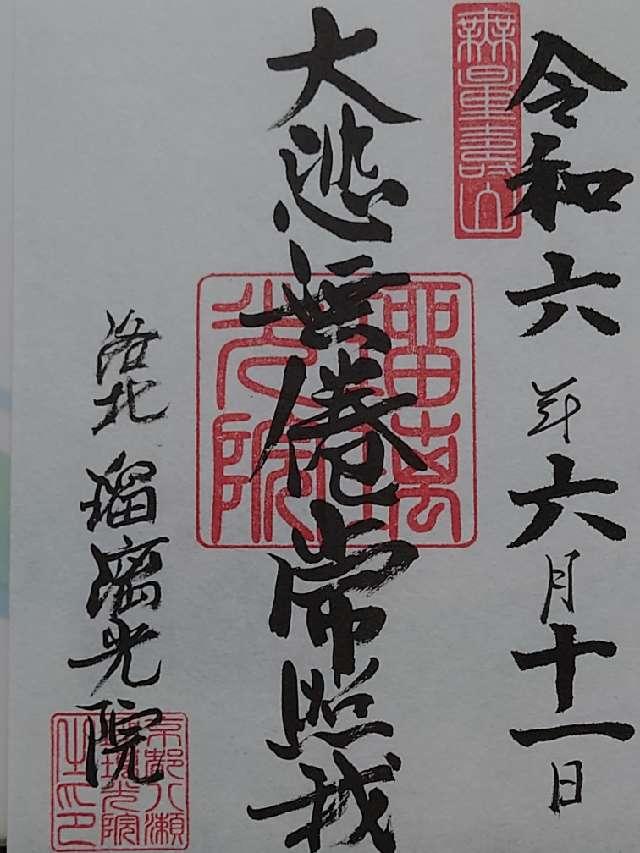 令和六年六月十一日
無量壽山
大悲無倦常照我
瑠璃光院
洛北 瑠璃光院
京都八瀬
瑠璃光院
之印